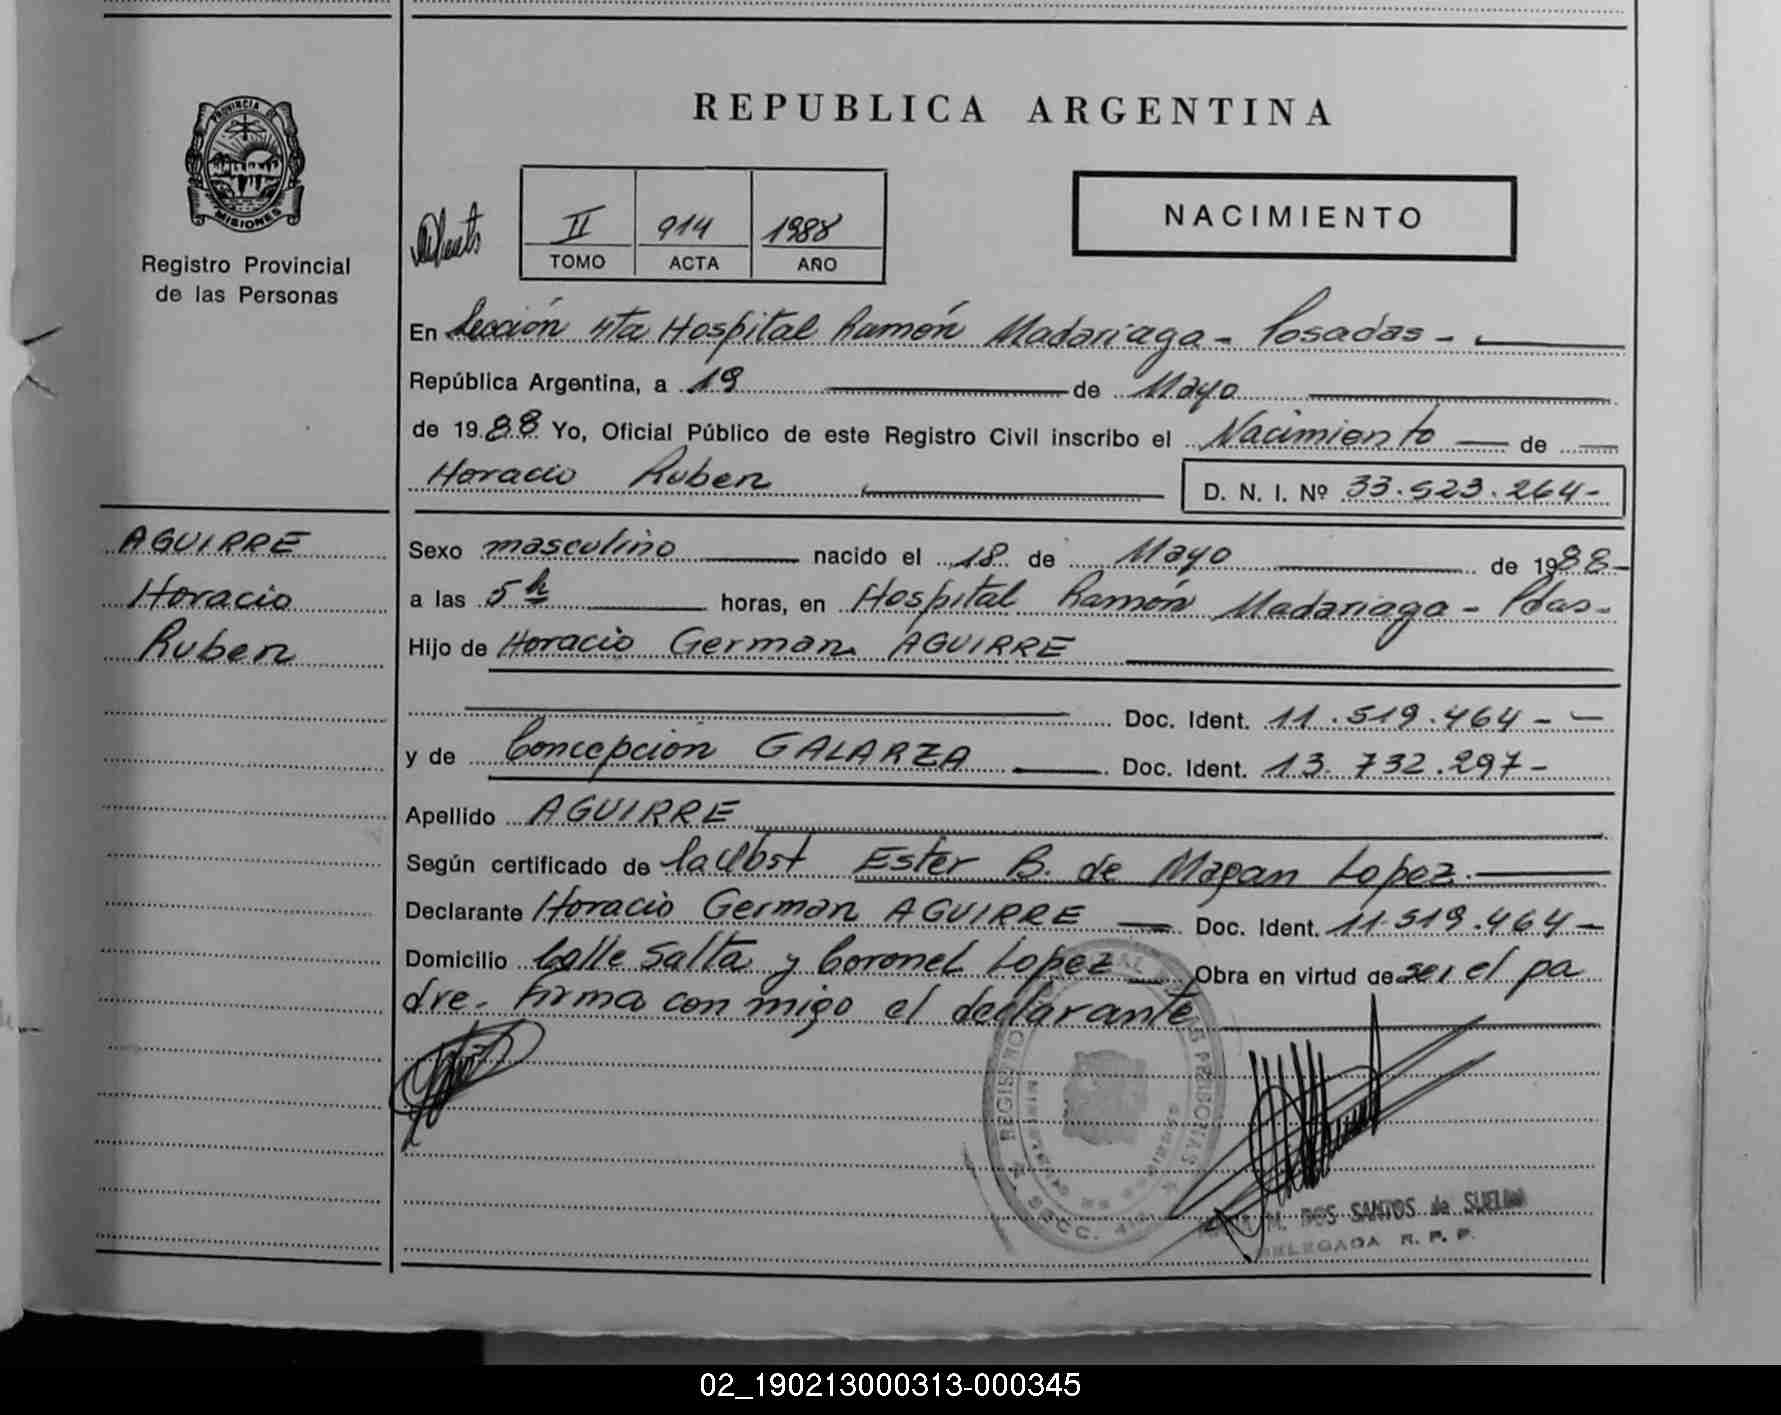 REPUBLICA ARGENTINA
PROVINCIA DE
MISIONES
Registro Provincial
de las Personas
II 914 1988
TOMO ACTA AÑO
NACIMIENTO
En Sección 4ta Hospital Ramón Madariaga - Posadas -
República Argentina, a 19 de Mayo
de 1988 Yo, Oficial Público de este Registro Civil inscribo el Nacimiento de
Horacio Ruben D. N. I. Nº 33.523.264-
AGUIRRE
Horacio
Ruben
Sexo masculino nacido el 18 de Mayo de 1988-
a las 5 h horas, en Hospital Ramón Madariaga - Pdas-
Hijo de Horacio German AGUIRRE
Doc. Ident. 11.519.464-
y de Concepcion GALARZA Doc. Ident. 13.732.297-
Apellido AGUIRRE
Según certificado de la Obst Ester B. de Magan Lopez.
Declarante Horacio German AGUIRRE Doc. Ident. 11.519.464-
Domicilio Calle Salta y Coronel Lopez Obra en virtud de ser el pa
dre. Firma con migo el declarante
REGISTRO PERSONAS
SECC. 4
M. DOS SANTOS de
DELEGADA R. P. P.
02_190213000313-000345